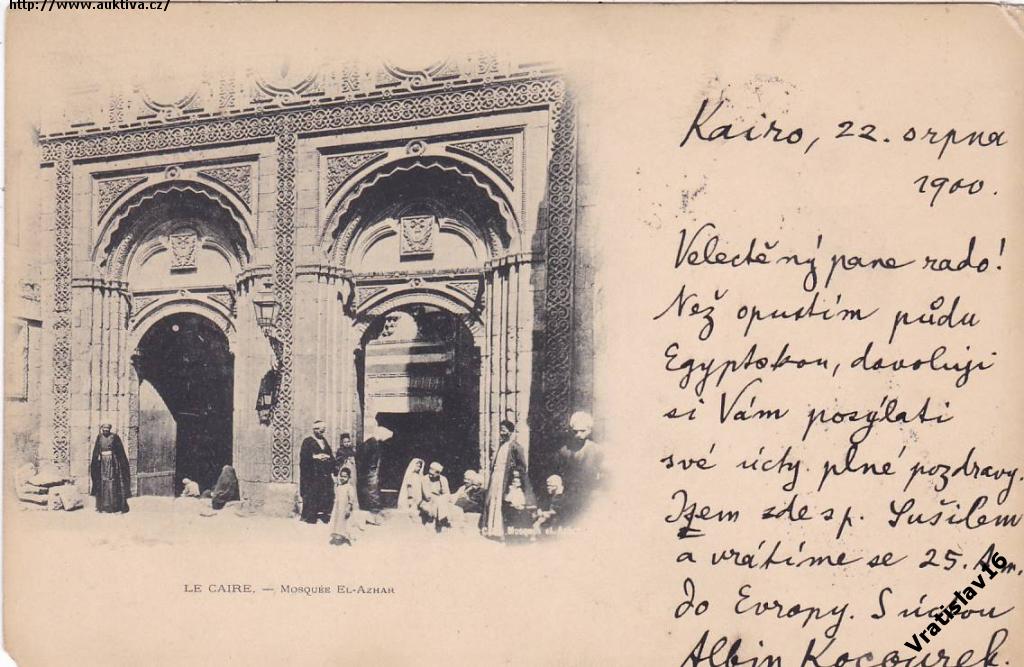 http://www.auktiva.cz/
Kairo, 22. srpna
1900.
Velectěný pane rado!
Než opustím půdu
Egyptskou, dovoluji
si Vám posýlati
své úcty plné pozdravy.
Jsem zde s p. Sušilem
a vrátíme se 25. t.m.
do Evropy. S úctou
Albin Kocourek.
LE CAIRE. — MOSQUÉE EL-AZHAR
Vratislav16